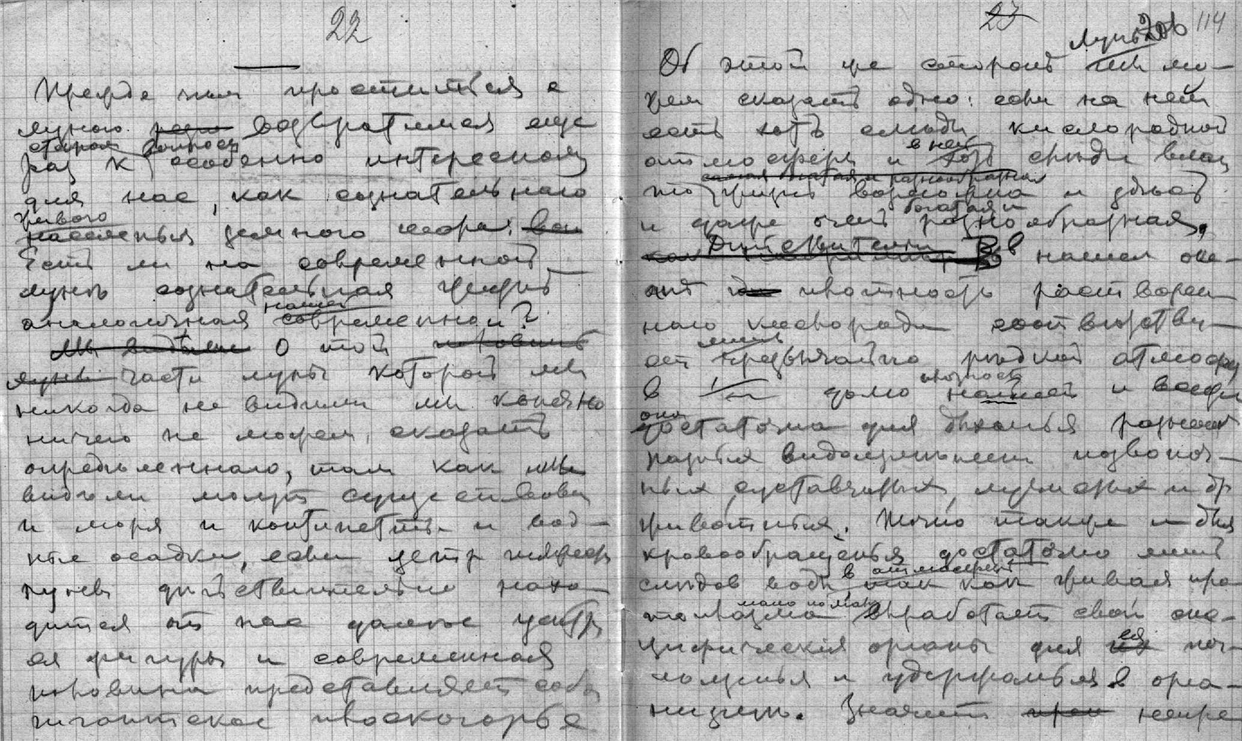 22
Прежде чем проститься с
луною возвратимся еще
раз к старому вопросу особенно интересному
для нас, как сознательнаго
живого населенья земного шара:
Есть ли на современной
лунѣ сознательная жизнь
аналогичная нашей современной?
О той
части луны которой мы
никогда не видимъ мы конечно
ничего не можем сказать
опредѣленнаго, там как мы
видѣли могут существовать
и моря и континенты и вод-
ные осадки, если центр тяжести
луны дѣйствительно нахо-
дится от нас далѣе центра
ея фигуры и современная
половина представляет собой
гигантское плоскогорье
23 114
Об этой же сторонѣ луны мы мо-
жем сказать одно: если на ней
есть хоть слѣды кислородной
атмосферы и в ней слѣды влаги
то жизнь возможна и здѣсь
и даже очень богатая и разнообразная,
в нашем оке-
анѣ плотность растворен-
наго кислорода соотвѣтству-
ет лишь чрезвычайно рѣдкой атмосферѣ
в долю плотности нашей и всежъ
она достаточна для дыханья
видоизмѣненьем позвоноч-
ных суставчатых, и др
животных. Точно также и для
кровообращенья достаточно лишь
слѣдов воды в атмосферѣ так как живая про-
топлазма мало по малу выработает свои спе-
цифическія органы для ея пог-
лощенья и удержанья в орга-
низмѣ. Значит